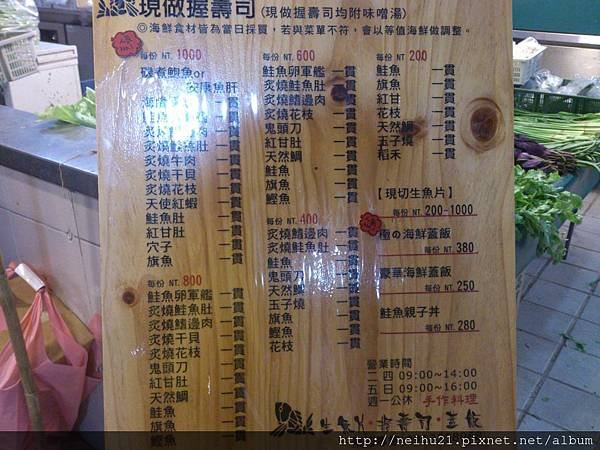 現做握壽司 (現做握壽司均附味噌湯)
◎海鮮食材皆為當日採買,若與菜單不符,會以等值海鮮做調整。
每份 NT. 1000
磯煮鮑魚or
安康魚肝
海膽 一貫
一貫
炙燒 一貫
炙燒鮭魚肚 一貫
炙燒牛肉 一貫
炙燒干貝 一貫
炙燒花枝 一貫
天使紅蝦 一貫
鮭魚肚 一貫
紅甘肚 一貫
穴子 一貫
旗魚 一貫
每份 NT. 800
鮭魚卵軍艦 一貫
炙燒鮭魚肚 一貫
炙燒鰭邊肉 一貫
炙燒干貝 一貫
炙燒花枝 一貫
鬼頭刀 一貫
紅甘肚 一貫
天然鯛 一貫
鮭魚 一貫
旗魚 一貫
鰹魚 一貫
每份 NT. 600
鮭魚卵軍艦 一貫
炙燒鮭魚肚 一貫
炙燒鰭邊肉 一貫
炙燒花枝 一貫
鬼頭刀 一貫
紅甘肚 一貫
天然鯛 一貫
鮭魚 一貫
旗魚 一貫
鰹魚 一貫
每份 NT. 400
炙燒鰭邊肉 一貫
炙燒鮭魚肚 一貫
鮭魚 一貫
鬼頭刀 一貫
天然鯛 一貫
玉子燒 一貫
旗魚 一貫
鰹魚 一貫
花枝 一貫
每份 NT. 200
鮭魚 一貫
旗魚 一貫
紅甘 一貫
花枝 一貫
天然鯛 一貫
玉子燒 一貫
稻禾 一貫
【現切生魚片】
每份 NT. 200-1000
極の海鮮蓋飯
每份 NT. 380
豪華海鮮蓋飯
每份 NT. 250
鮭魚親子丼
每份 NT. 280
營業時間
二 四 09:00~14:00
五 日 09:00~16:00
週一公休 手作料理
生魚片・握壽司・蓋飯
http://neihu21.pixnet.net/album